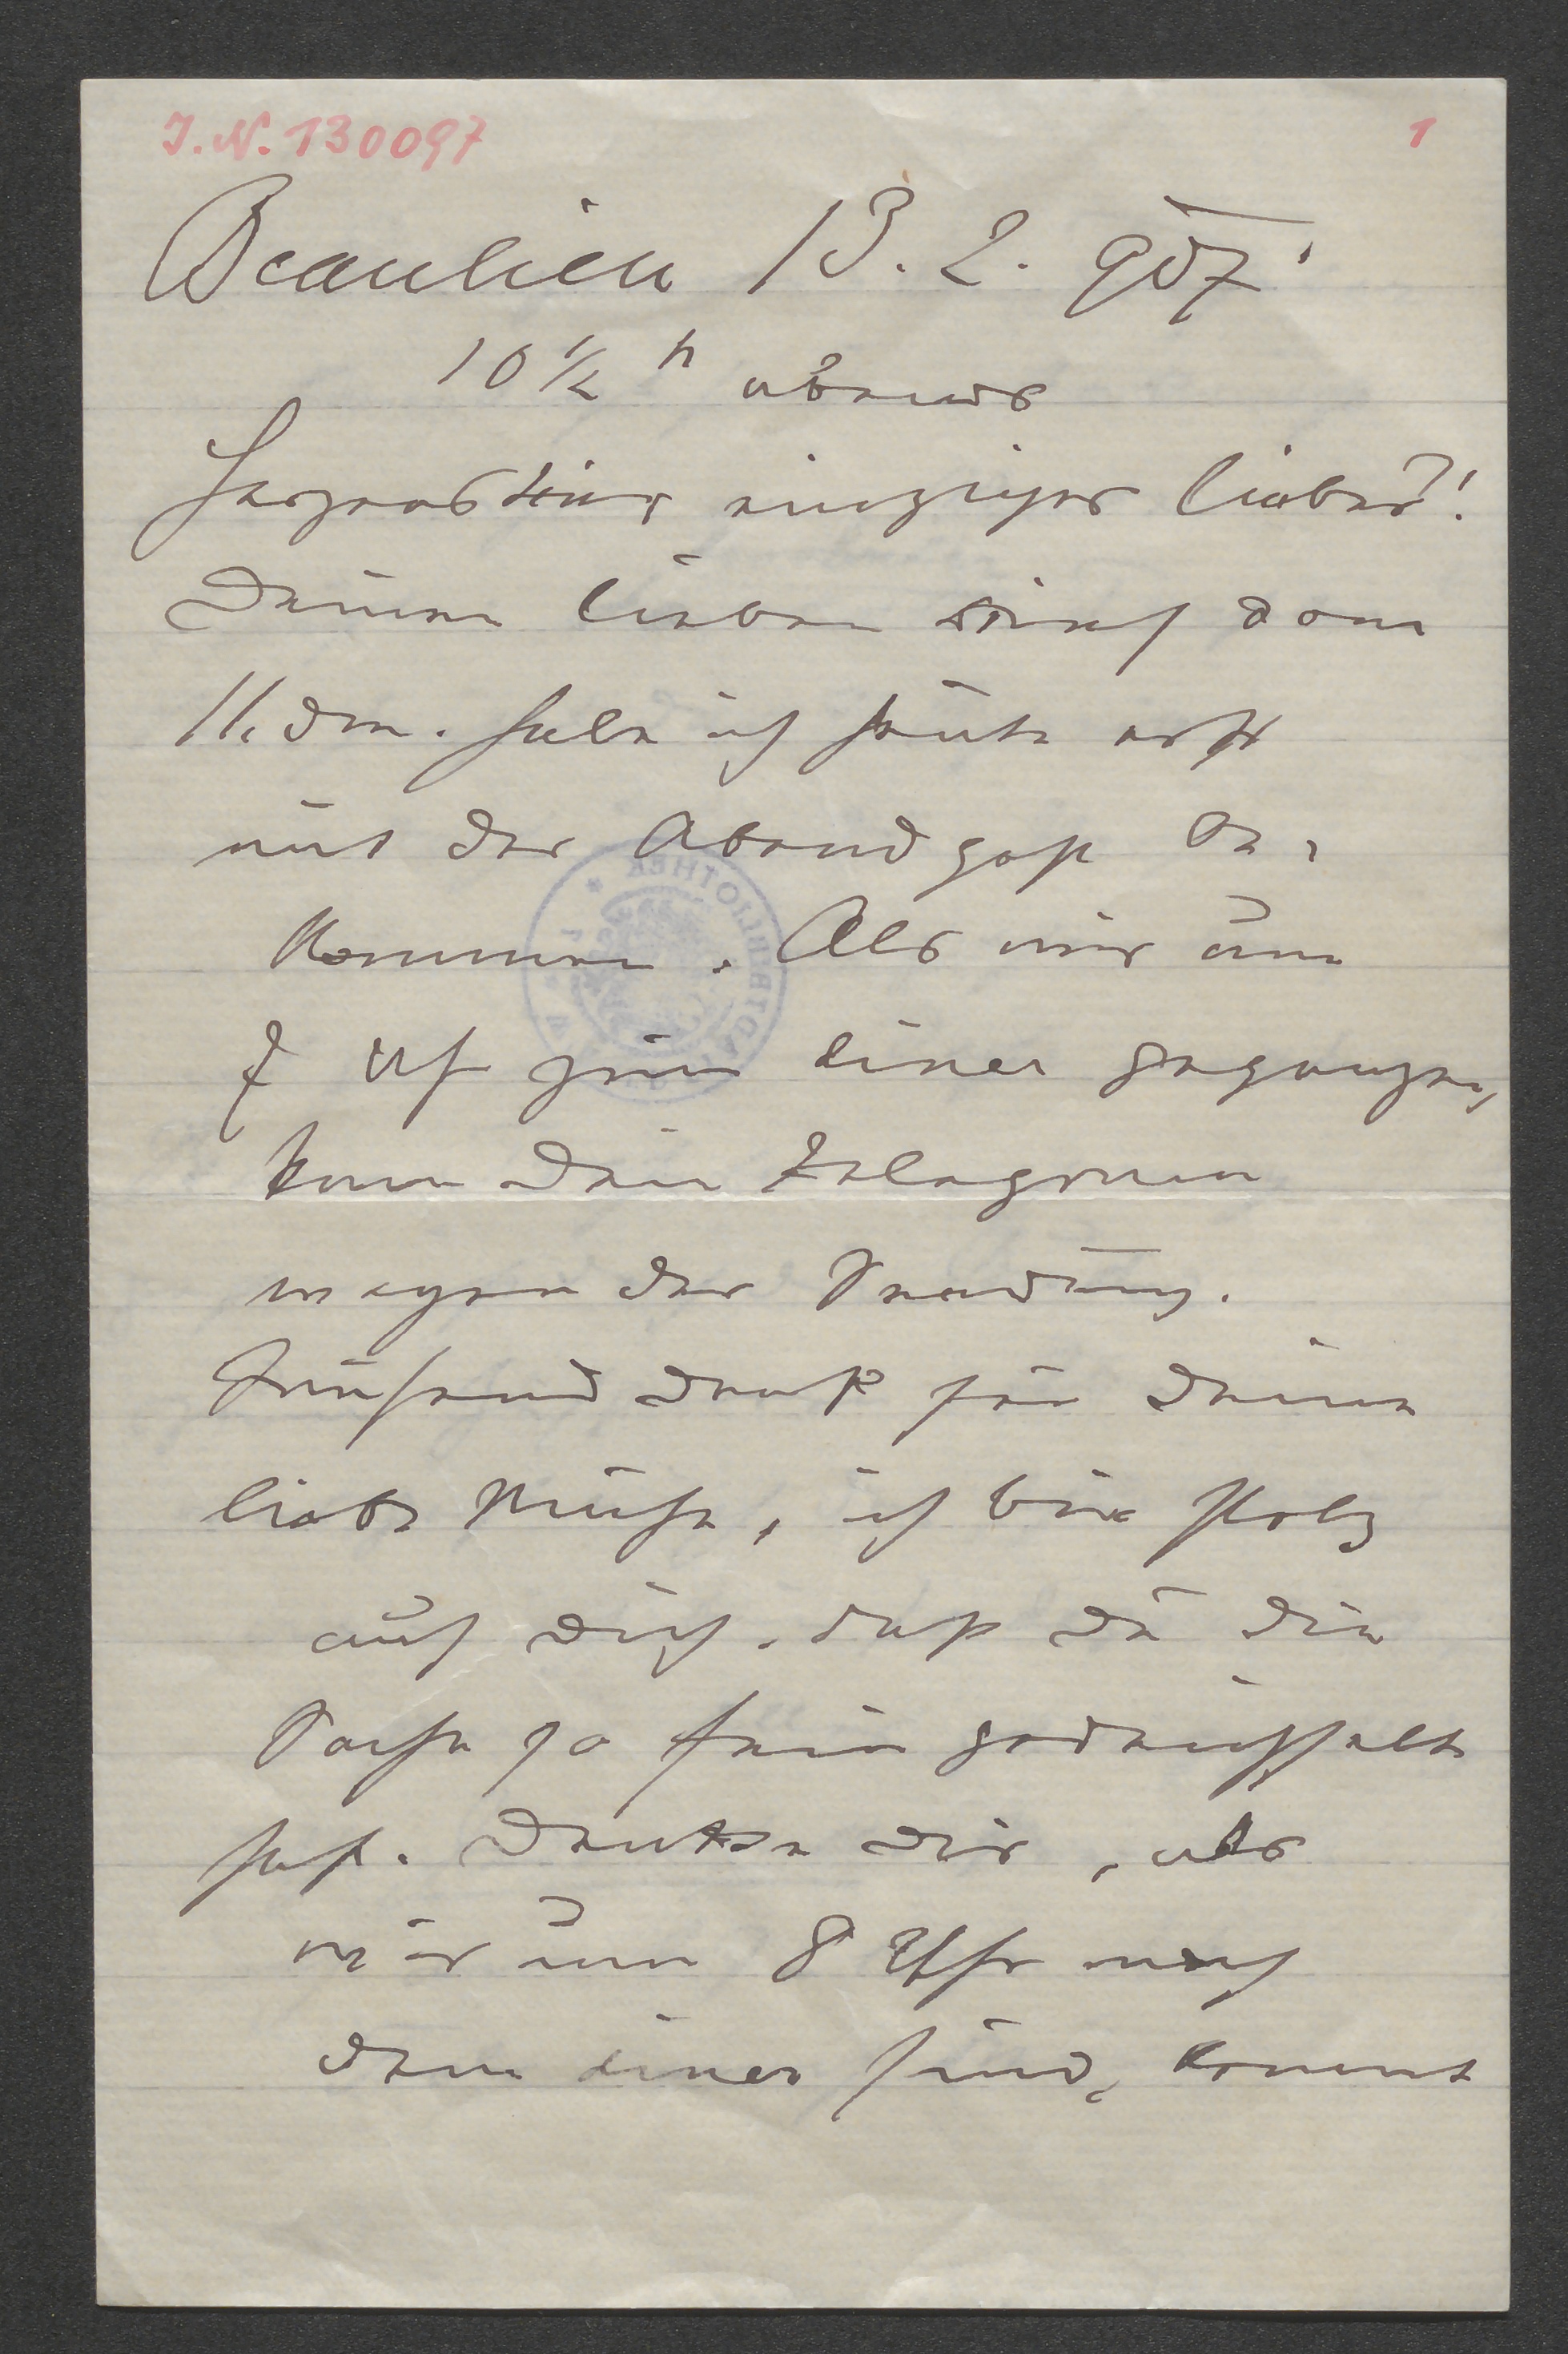 J. N. 130097
1
Beaulieu 13. 2. 907.
10 ½ h abends
Herzens einziger lieber!
Deinen lieben Brief vom
11. dm. habe ich heute erst
mit der Abendpost be-
kommen. Als wir um
7 Uhr zum diner gegangen,
kam Dein Telegramm
wegen der Sendung.
Tausend Dank für Deine
liebe Mühe, ich bin stolz
auf Dich, daß Du die
Sache so fein gedeichselt
hast. Denke Dir, als
wir um 8 Uhr nach
dem diner sind, kommt